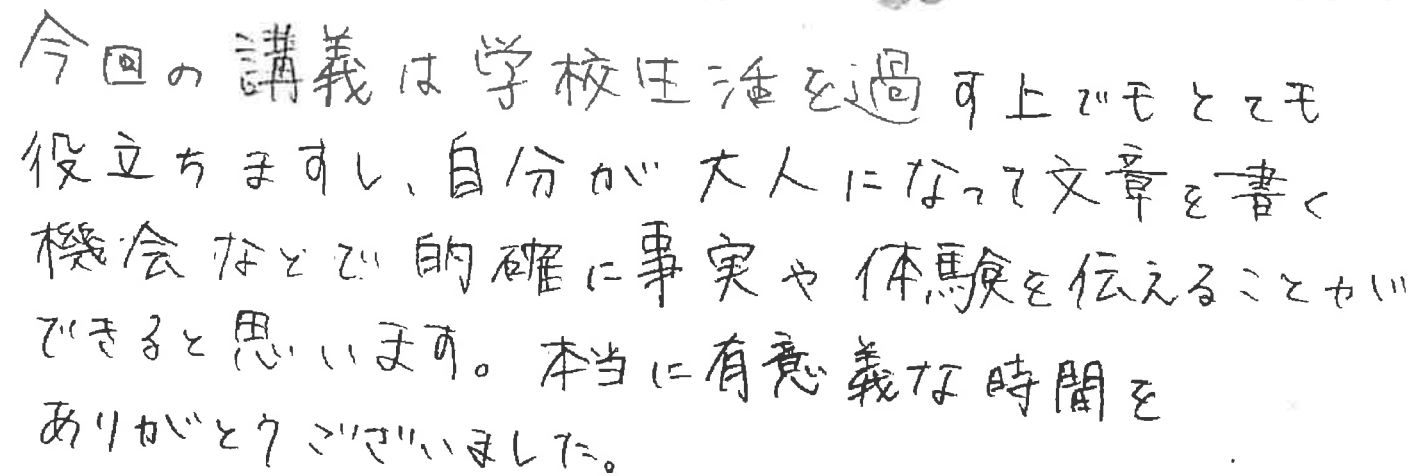 今回の講義は学校生活を過す上でもとても
役立ちますし、自分が大人になって文章を書く
機会などで的確に事実や体験を伝えることが
できると思います。本当に有意義な時間を
ありがとうございました。